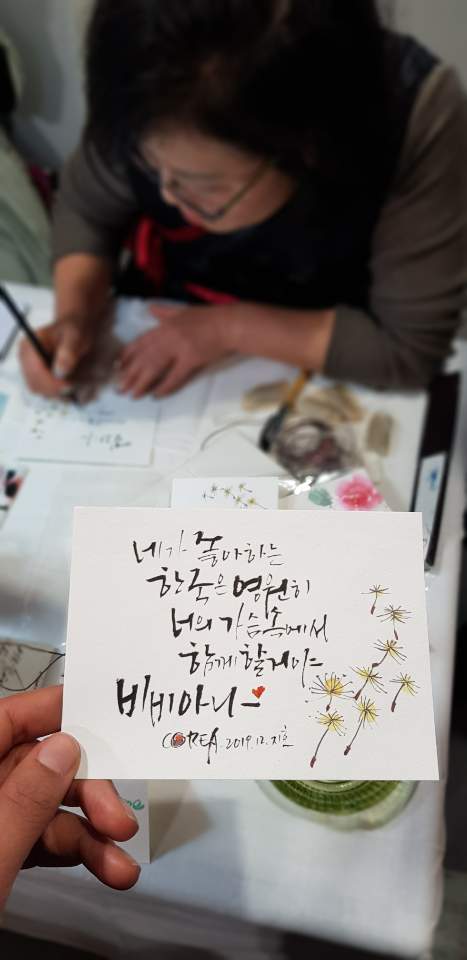 네가 좋아하는
한국은 영원히
너의 가슴속에서
함께 할거야~
비비아나~
COREA. 2019.12. 지호